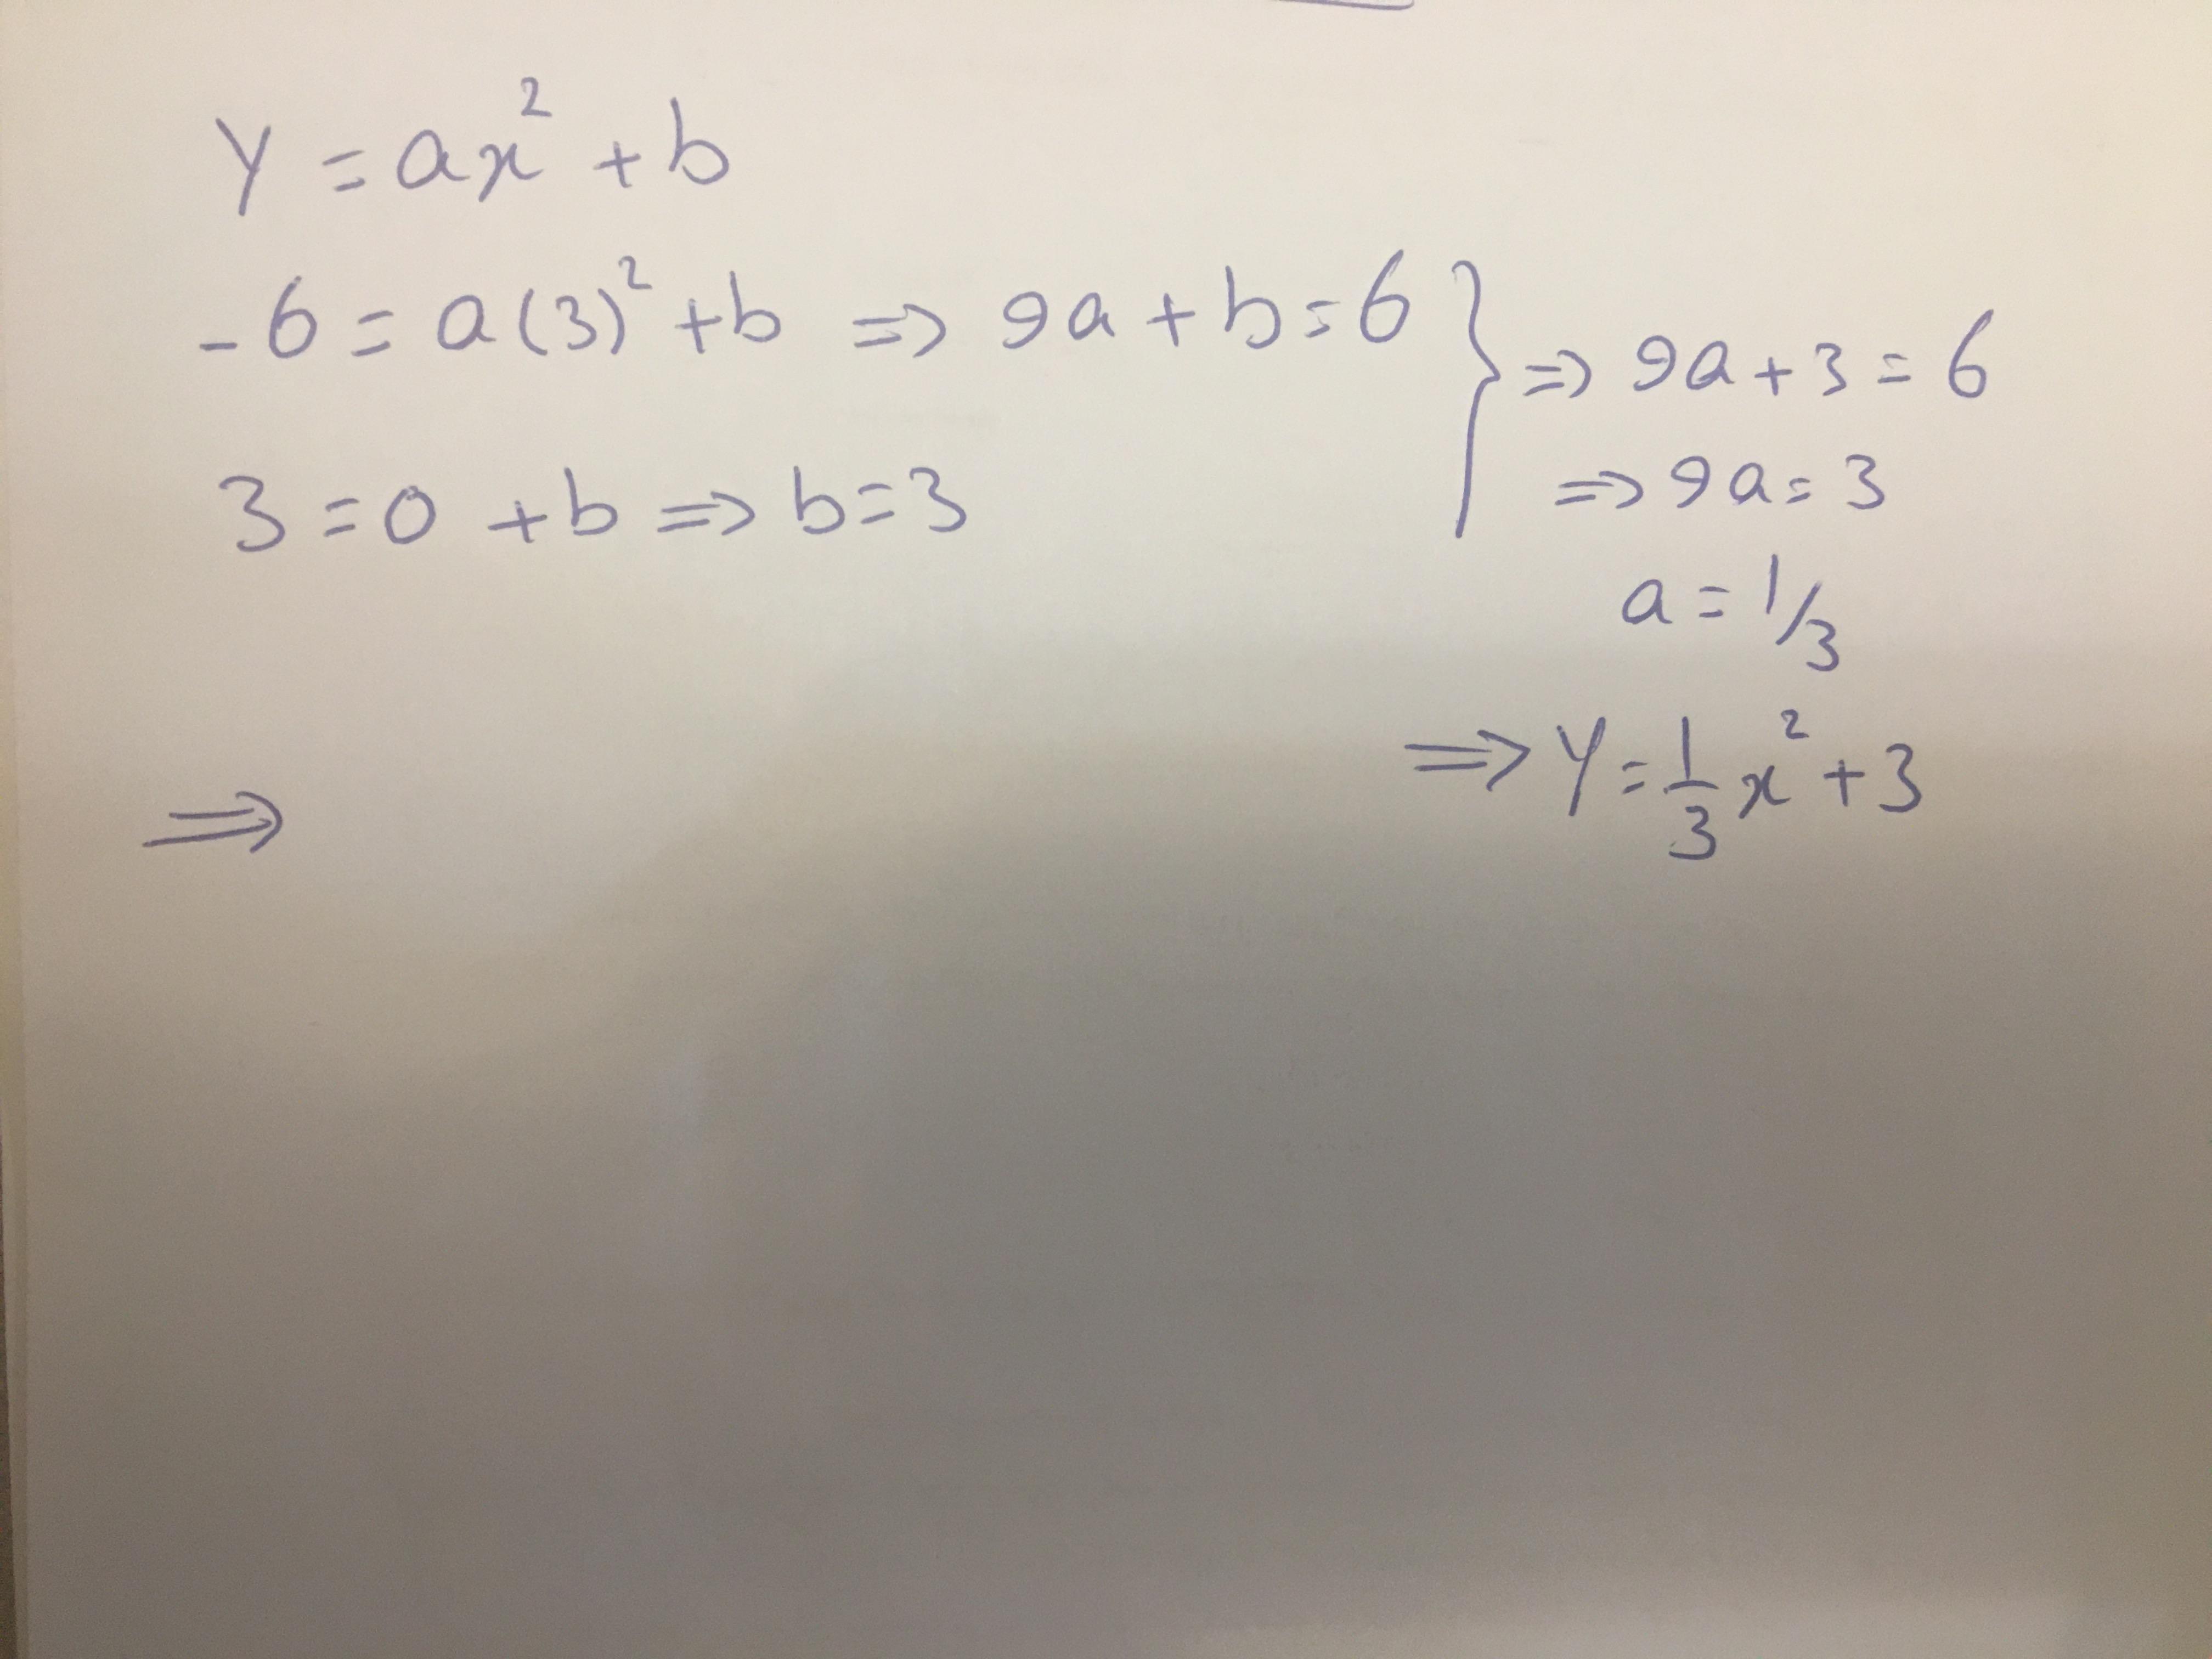 y = ax² + b
-6 = a(3)² + b => 9a + b = 6
3 = 0 + b => b = 3
} => 9a + 3 = 6
=> 9a = 3
a = 1/3
=> y = 1/3 x² + 3
=>